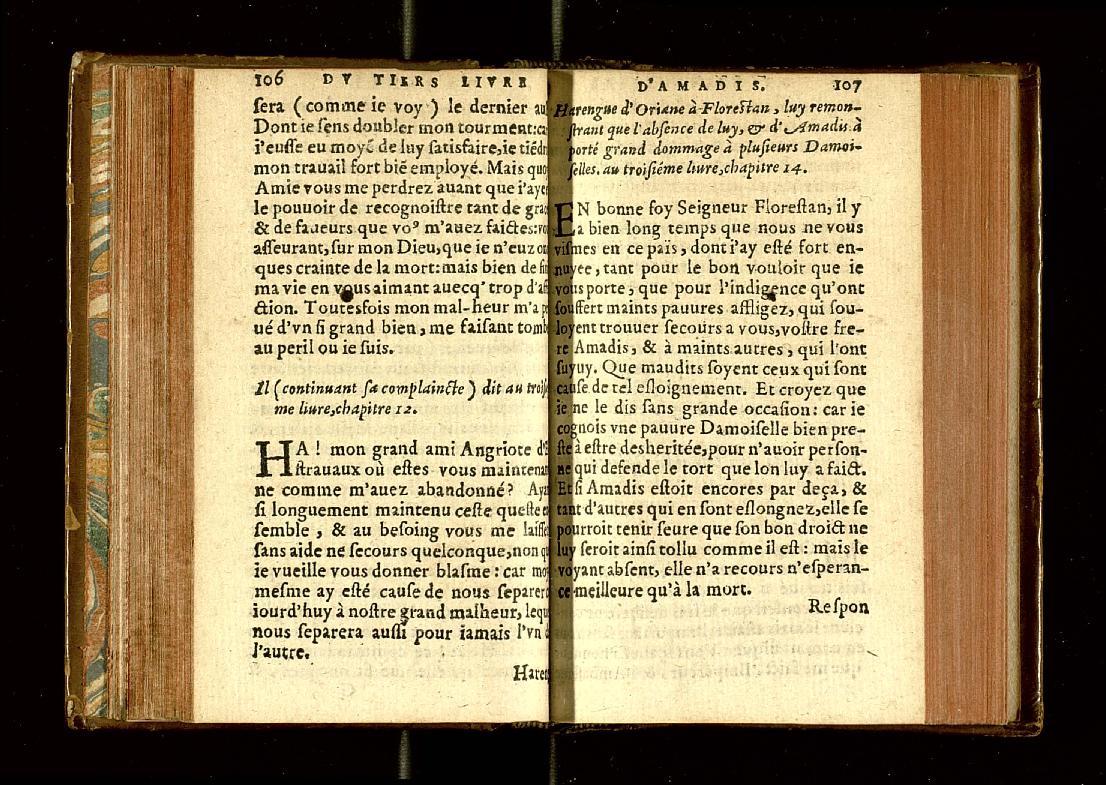 106 DV TIERS LIVRE
sera ( comme ie voy ) le dernier
Dont ie sens doubler mon tourment:
i'eusse eu moyẽ de luy satisfaire, ie
mon trauail fort biẽ employé. Mais
Amie vous me perdrez auant que
le pouuoir de recognoistre tant de
& de faueurs que voꝰ m'auez faictes:
asseurant, sur mon Dieu, que ie n'euz
ques crainte de la mort: mais bien de
ma vie en vous aimant auecq' trop
ction. Toutesfois mon mal-heur m'a
ué d'vn si grand bien, me faisant
au peril ou ie suis.
Il (continuant sa complaincte) dit au
me liure, chapitre 12.
HA ! mon grand ami Angriote
strauaux où estes vous
ne comme m'auez abandonné?
si longuement maintenu ceste queste
semble , & au besoing vous me
sans aide ne secours quelconque, non
ie vueille vous donner blasme : car
mesme ay esté cause de nous
iourd'huy à nostre grand malheur,
nous separera aussi pour iamais l'vn
l'autre.
D'AMADIS. 107
Harengue d'Oriane à Florestan, luy remon-
strant que l'absence de luy, & d'Amadis à
porté grand dommage à plusieurs Damoi-
selles. au troisiéme liure, chapitre 14.
EN bonne foy Seigneur Florestan, il y
a bien long temps que nous ne vous
vismes en ce païs, dont i'ay esté fort en-
nuyee, tant pour le bon vouloir que ie
vous porte, que pour l'indigence qu'ont
souffert maints pauures affligez, qui sou-
loyent trouuer secours a vous, vostre fre-
re Amadis, & à maints autres, qui l'ont
suyuy. Que maudits soyent ceux qui sont
cause de tel esloignement. Et croyez que
ie ne le dis sans grande occasion: car ie
cognois vne pauure Damoiselle bien pre-
ste à estre desheritée, pour n'auoir person-
ne qui defende le tort que lon luy a faict.
Et si Amadis estoit encores par deça, &
tant d'autres qui en sont eslongnez, elle se
pourroit tenir seure que son bon droict ne
luy seroit ainsi tollu comme il est : mais le
voyant absent, elle n'a recours n'esperan-
ce meilleure qu'à la mort.
Respon